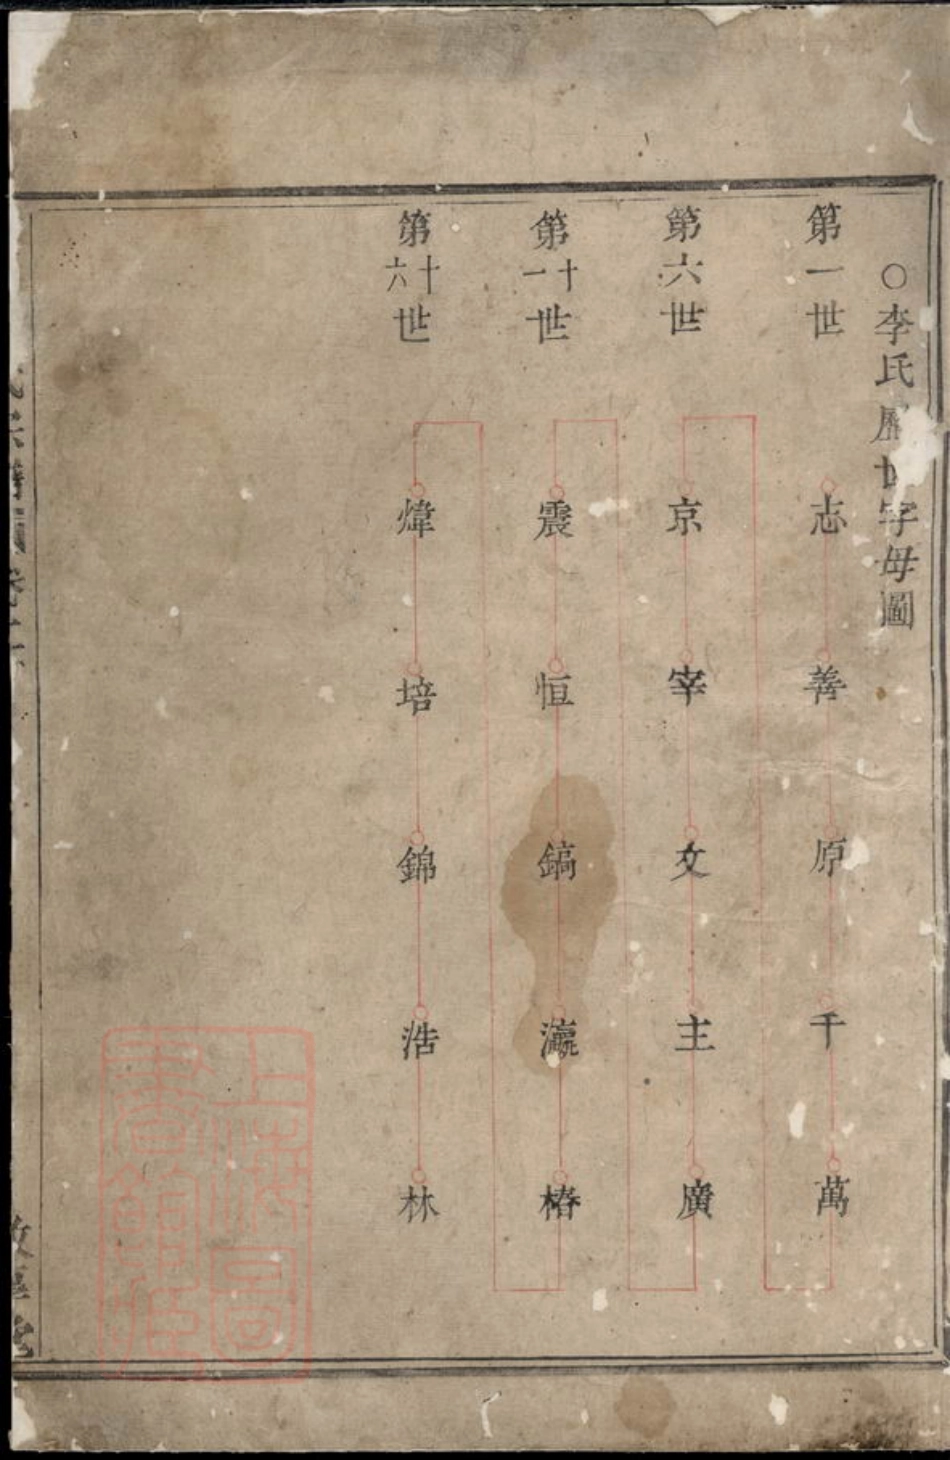 ○李氏歷世字母圖
第一世 志 善 原 千 萬
第六世 京 宰 文 主 廣
第十一世 震 恒 鎬 瀛 椿
第十六世 煒 培 錦 浩 林
上海圖書館藏